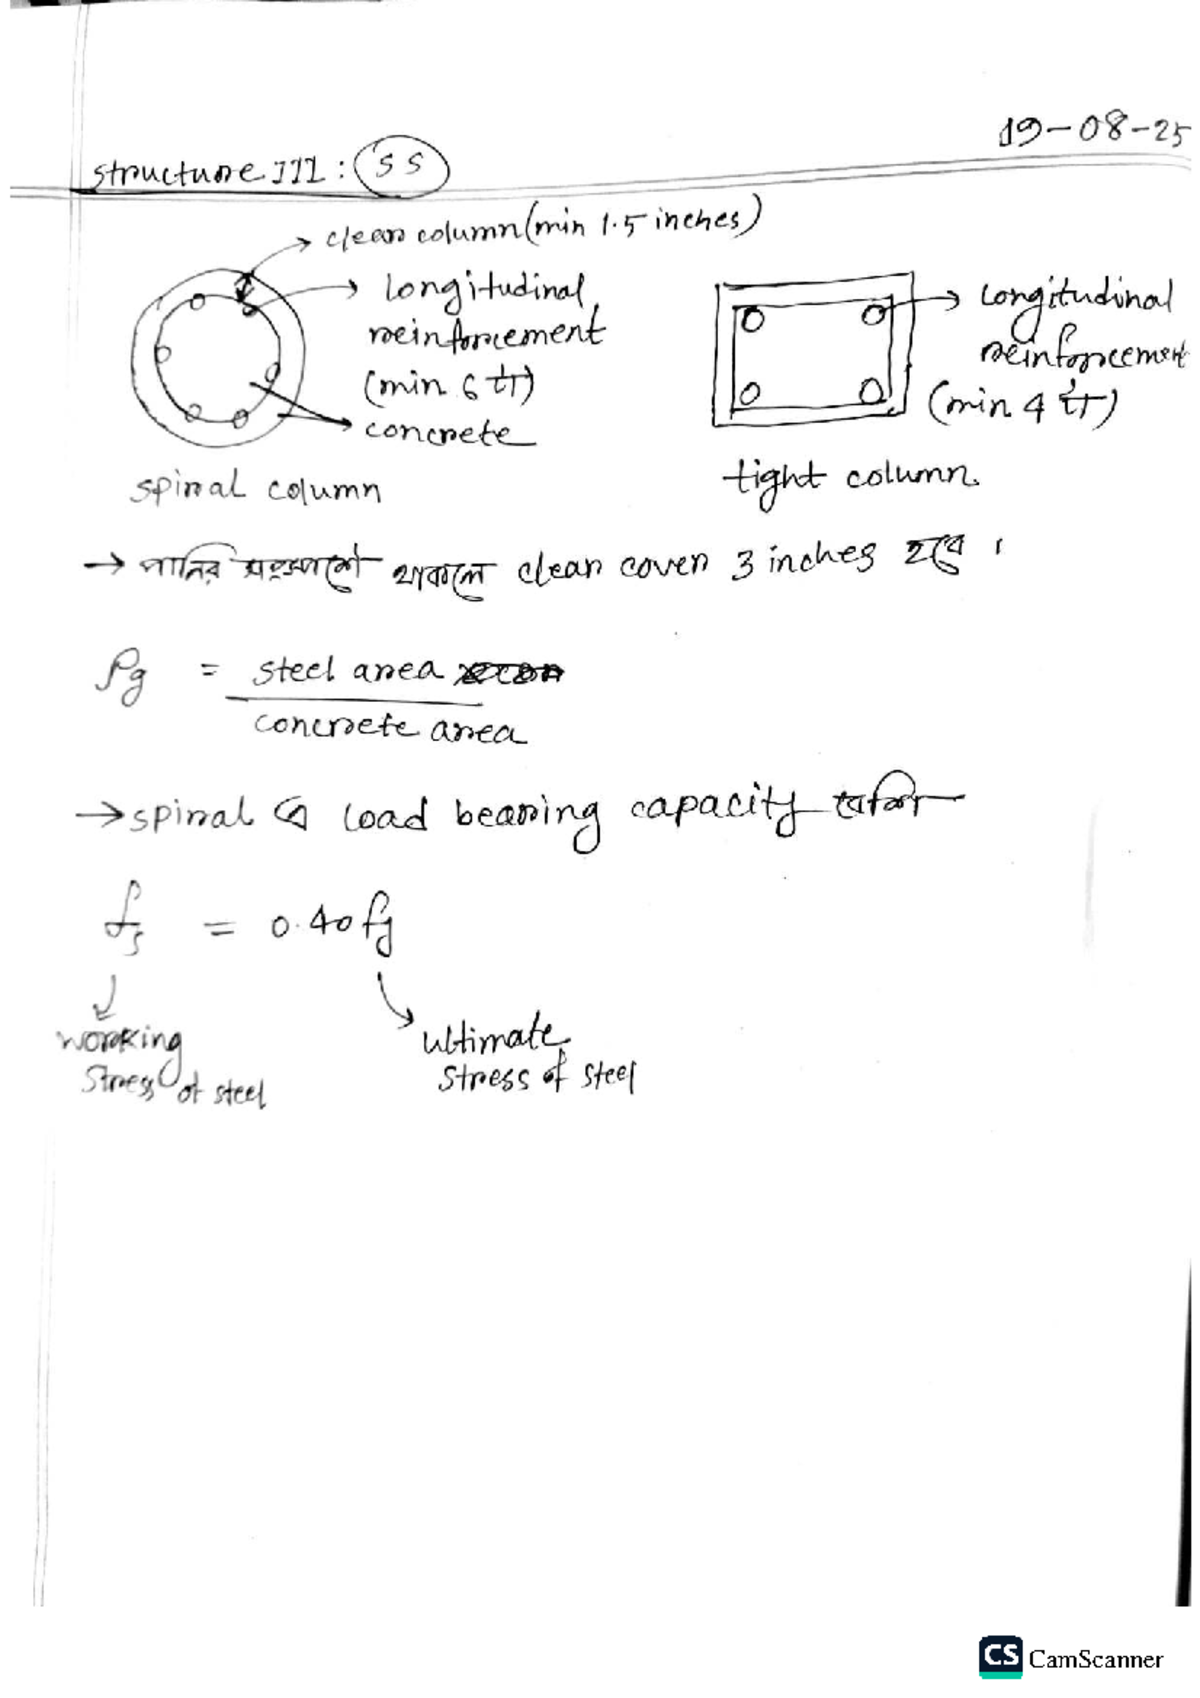 19-08-25
Structure III : SS
clear column (min 1.5 inches)
Longitudinal
reinforcement
(min 6 টা)
concrete
spiral column
Longitudinal
reinforcement
(min 4 টা)
tight column.
→ পানির সংস্পর্শে থাকলে clear cover 3 inches হবে ।
ρg = steel area
concrete area
→ spiral এ load bearing capacity বেশি
fs = 0.40 fy
working
stress of steel
ultimate
stress of steel
CS CamScanner